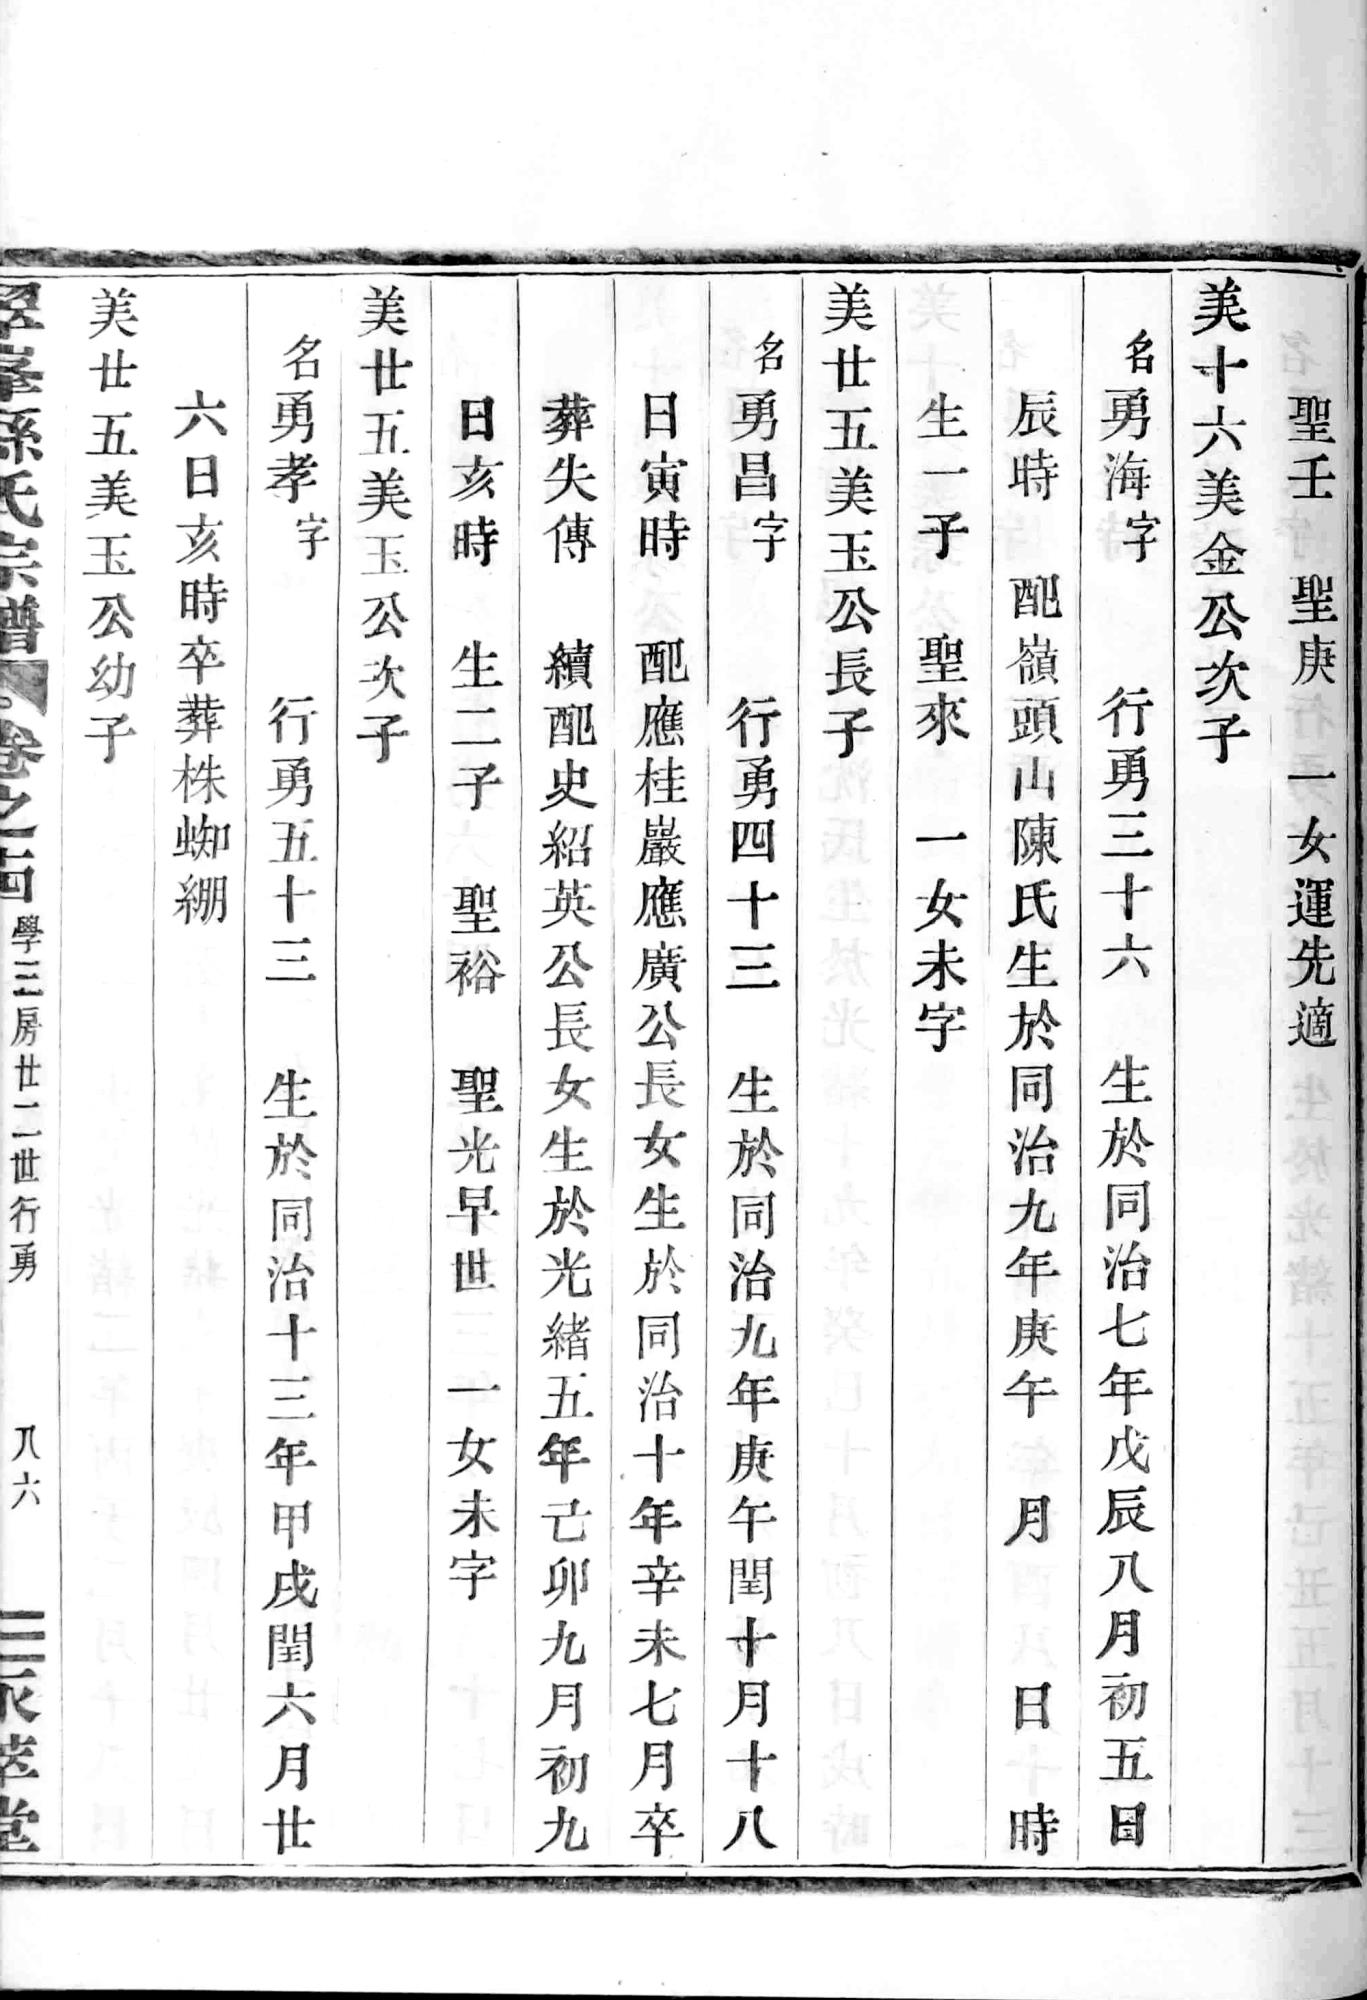 聖壬　聖庚　一女運先適
美十六美金公次子
名勇海字　行勇三十六　生於同治七年戊辰八月初五日
辰時　配嶺頭山陳氏生於同治九年庚午　月　日　時
生一子　聖來　一女未字
美廿五美玉公長子
名勇昌字　行勇四十三　生於同治九年庚午閏十月十八
日寅時　配應桂巖應廣公長女生於同治十年辛未七月卒
葬失傳　續配史紹英公長女生於光緒五年己卯九月初九
日亥時　生二子　聖裕　聖光早世　一女未字
美廿五美玉公次子
名勇孝字　行勇五十三　生於同治十三年甲戌閏六月廿
六日亥時卒葬株蜘綳
美廿五美玉公幼子
翠峯孫氏宗譜　卷之十四　學三房廿二世行勇　八六　永萃堂